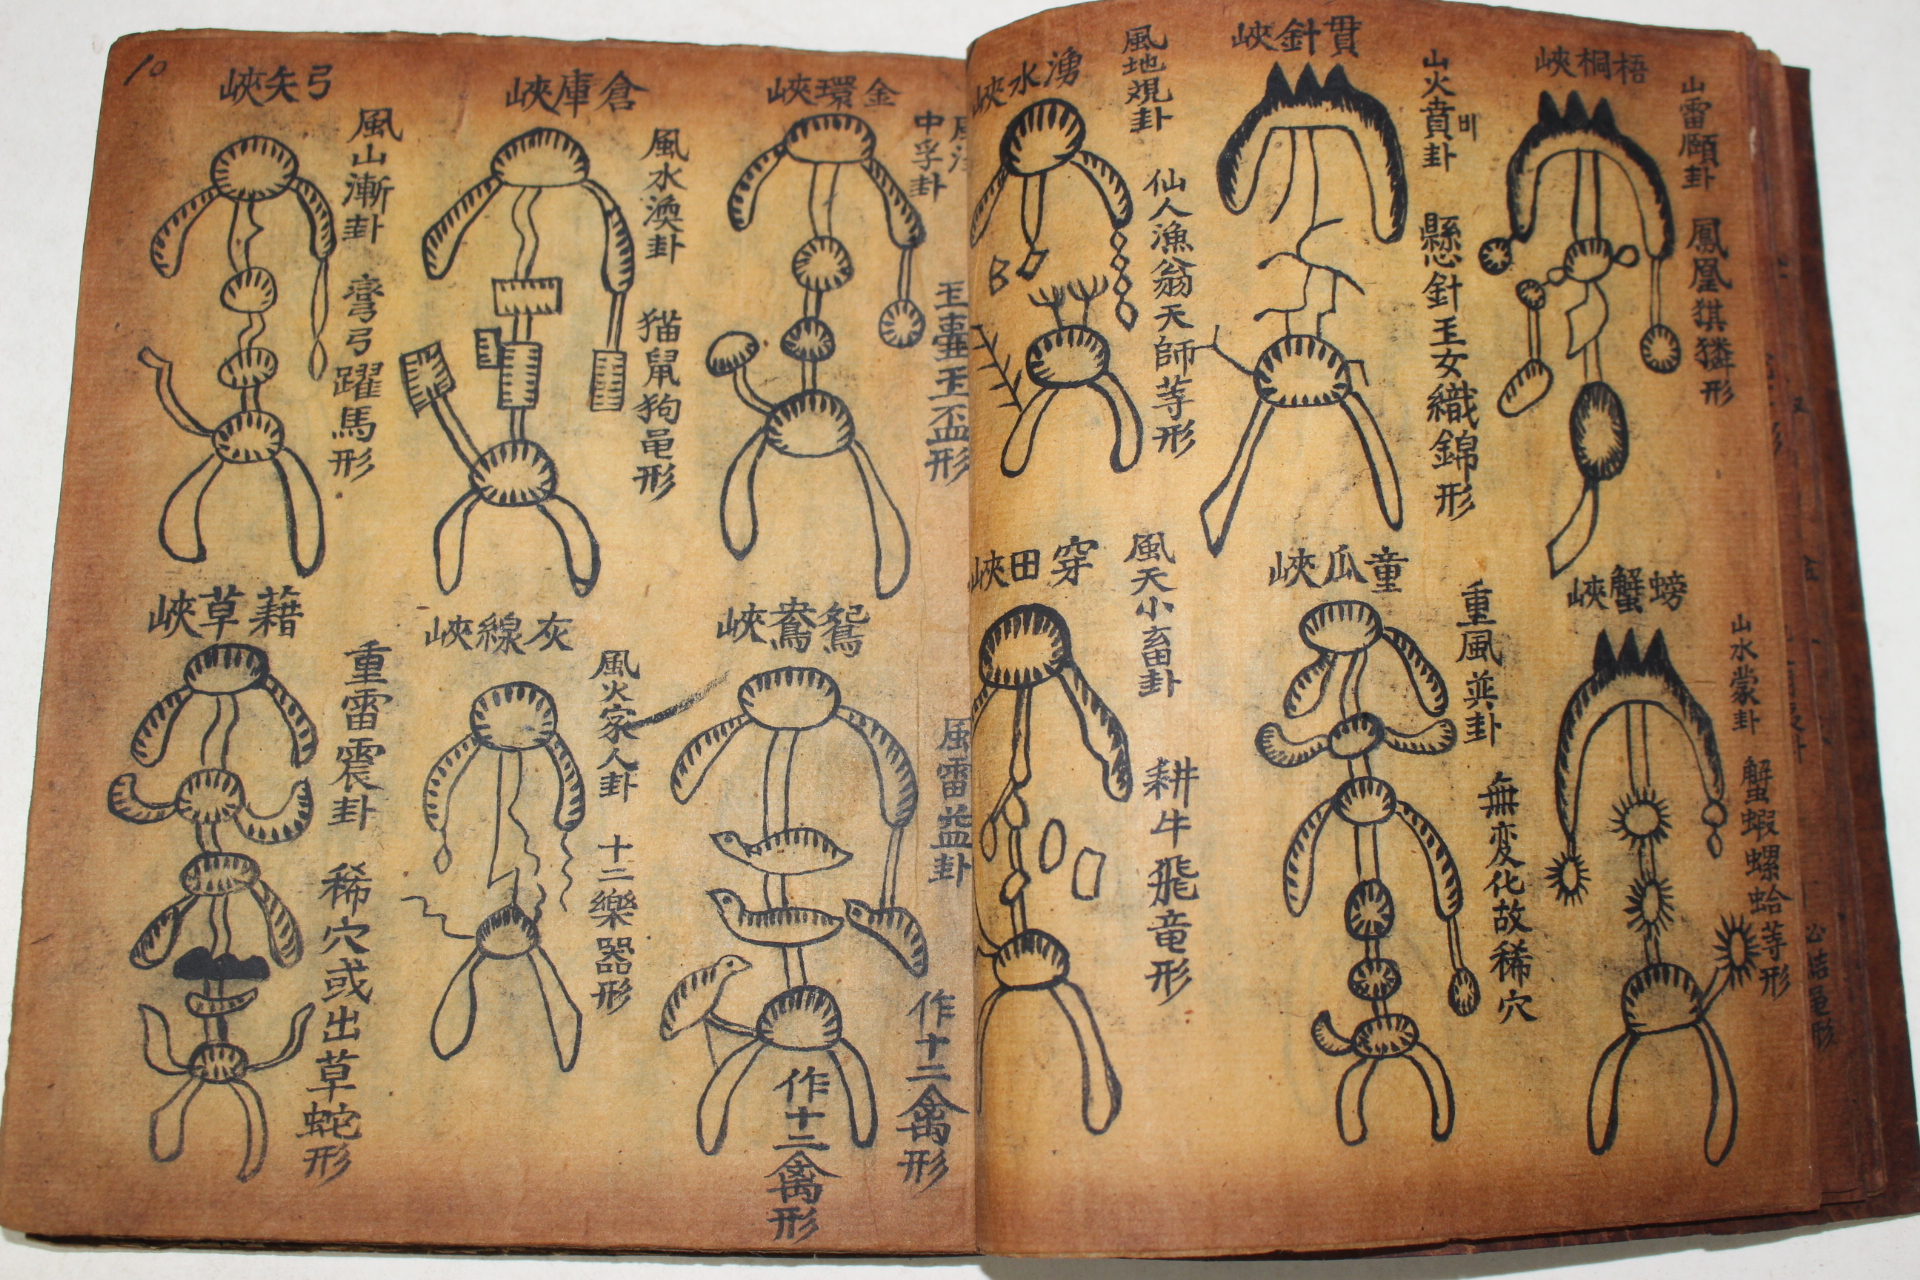 梧桐峽
山雷頤卦 鳳凰猉獜形
貫針峽
山火賁卦
비
懸針玉女織錦形
湧水峽
風地观卦 仙人漁翁天師等形
螃蟹峽
山水蒙卦 蟹蝦螺蛤等形
童瓜峽
重風巽卦 無変化故稀穴
穿田峽
風天小畜卦 耕牛飛竜形
金環峽
中孚卦
玉壷玉盃形
倉庫峽
風水渙卦 猫鼠狗黽形
弓矢峽
風山漸卦 彎弓躍馬形
鴛鴦峽
風雷益卦 作十二禽形
作十二禽形
灰線峽
風火家人卦 十二樂器形
藉草峽
重雷震卦 稀穴或出草蛇形
10